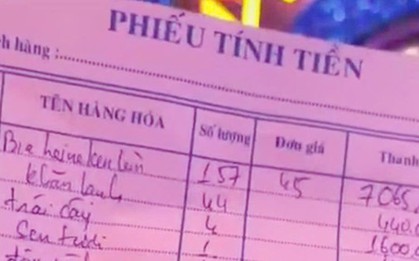 PHIẾU TÍNH TIỀN
h hàng :
TÊN HÀNG HÓA Số lượng Đơn giá Thanh
Bia heineken lùn 157 45 7065.
Khăn lạnh 44 440.
trái cây 4 1600.
Sen tươi 1